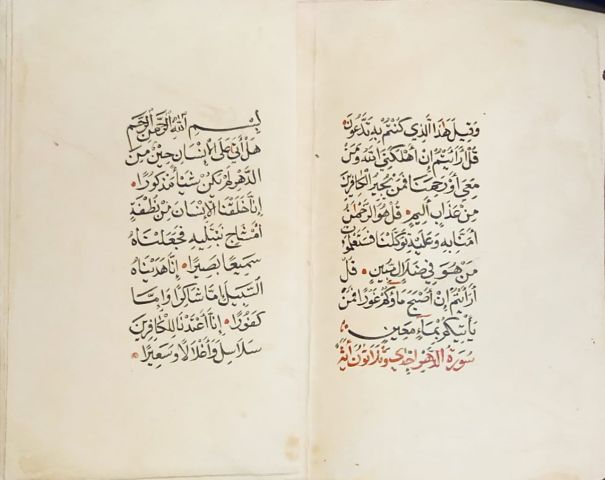 وقيل هذا الذي كنتم به تدعون
قل ارايتم ان اهلكني الله ومن
معي أو رحمنا فمن يجير الكافرين
من عذاب اليم قل هو الرحمن
امنا به وعليه توكلنا فستعلمون
من هو في ضلال مبين قل
أرايتم إن أصبح ماؤكم غورا فمن
يأتيكم بماء معين
سورة الدهر احدي وثلاثون آية
بسم الله الرحمن الرحيم
هل أتى على الإنسان حين من
الدهر لم يكن شيئا مذكورا
إنا خلقنا الإنسان من نطفة
أمشاج نبتليه فجعلناه
سميعا بصيرا إنا هديناه
السبيل إما شاكرا وإما
كفورا إنا أعتدنا للكافرين
سلاسل وأغلالا وسعيرا